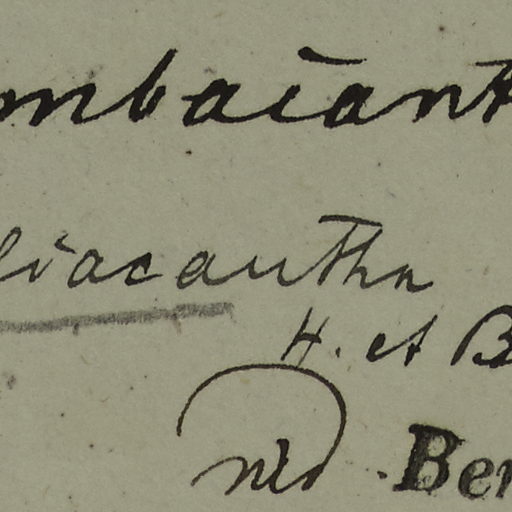 mbaiant
liacantha
H. et B
Ber